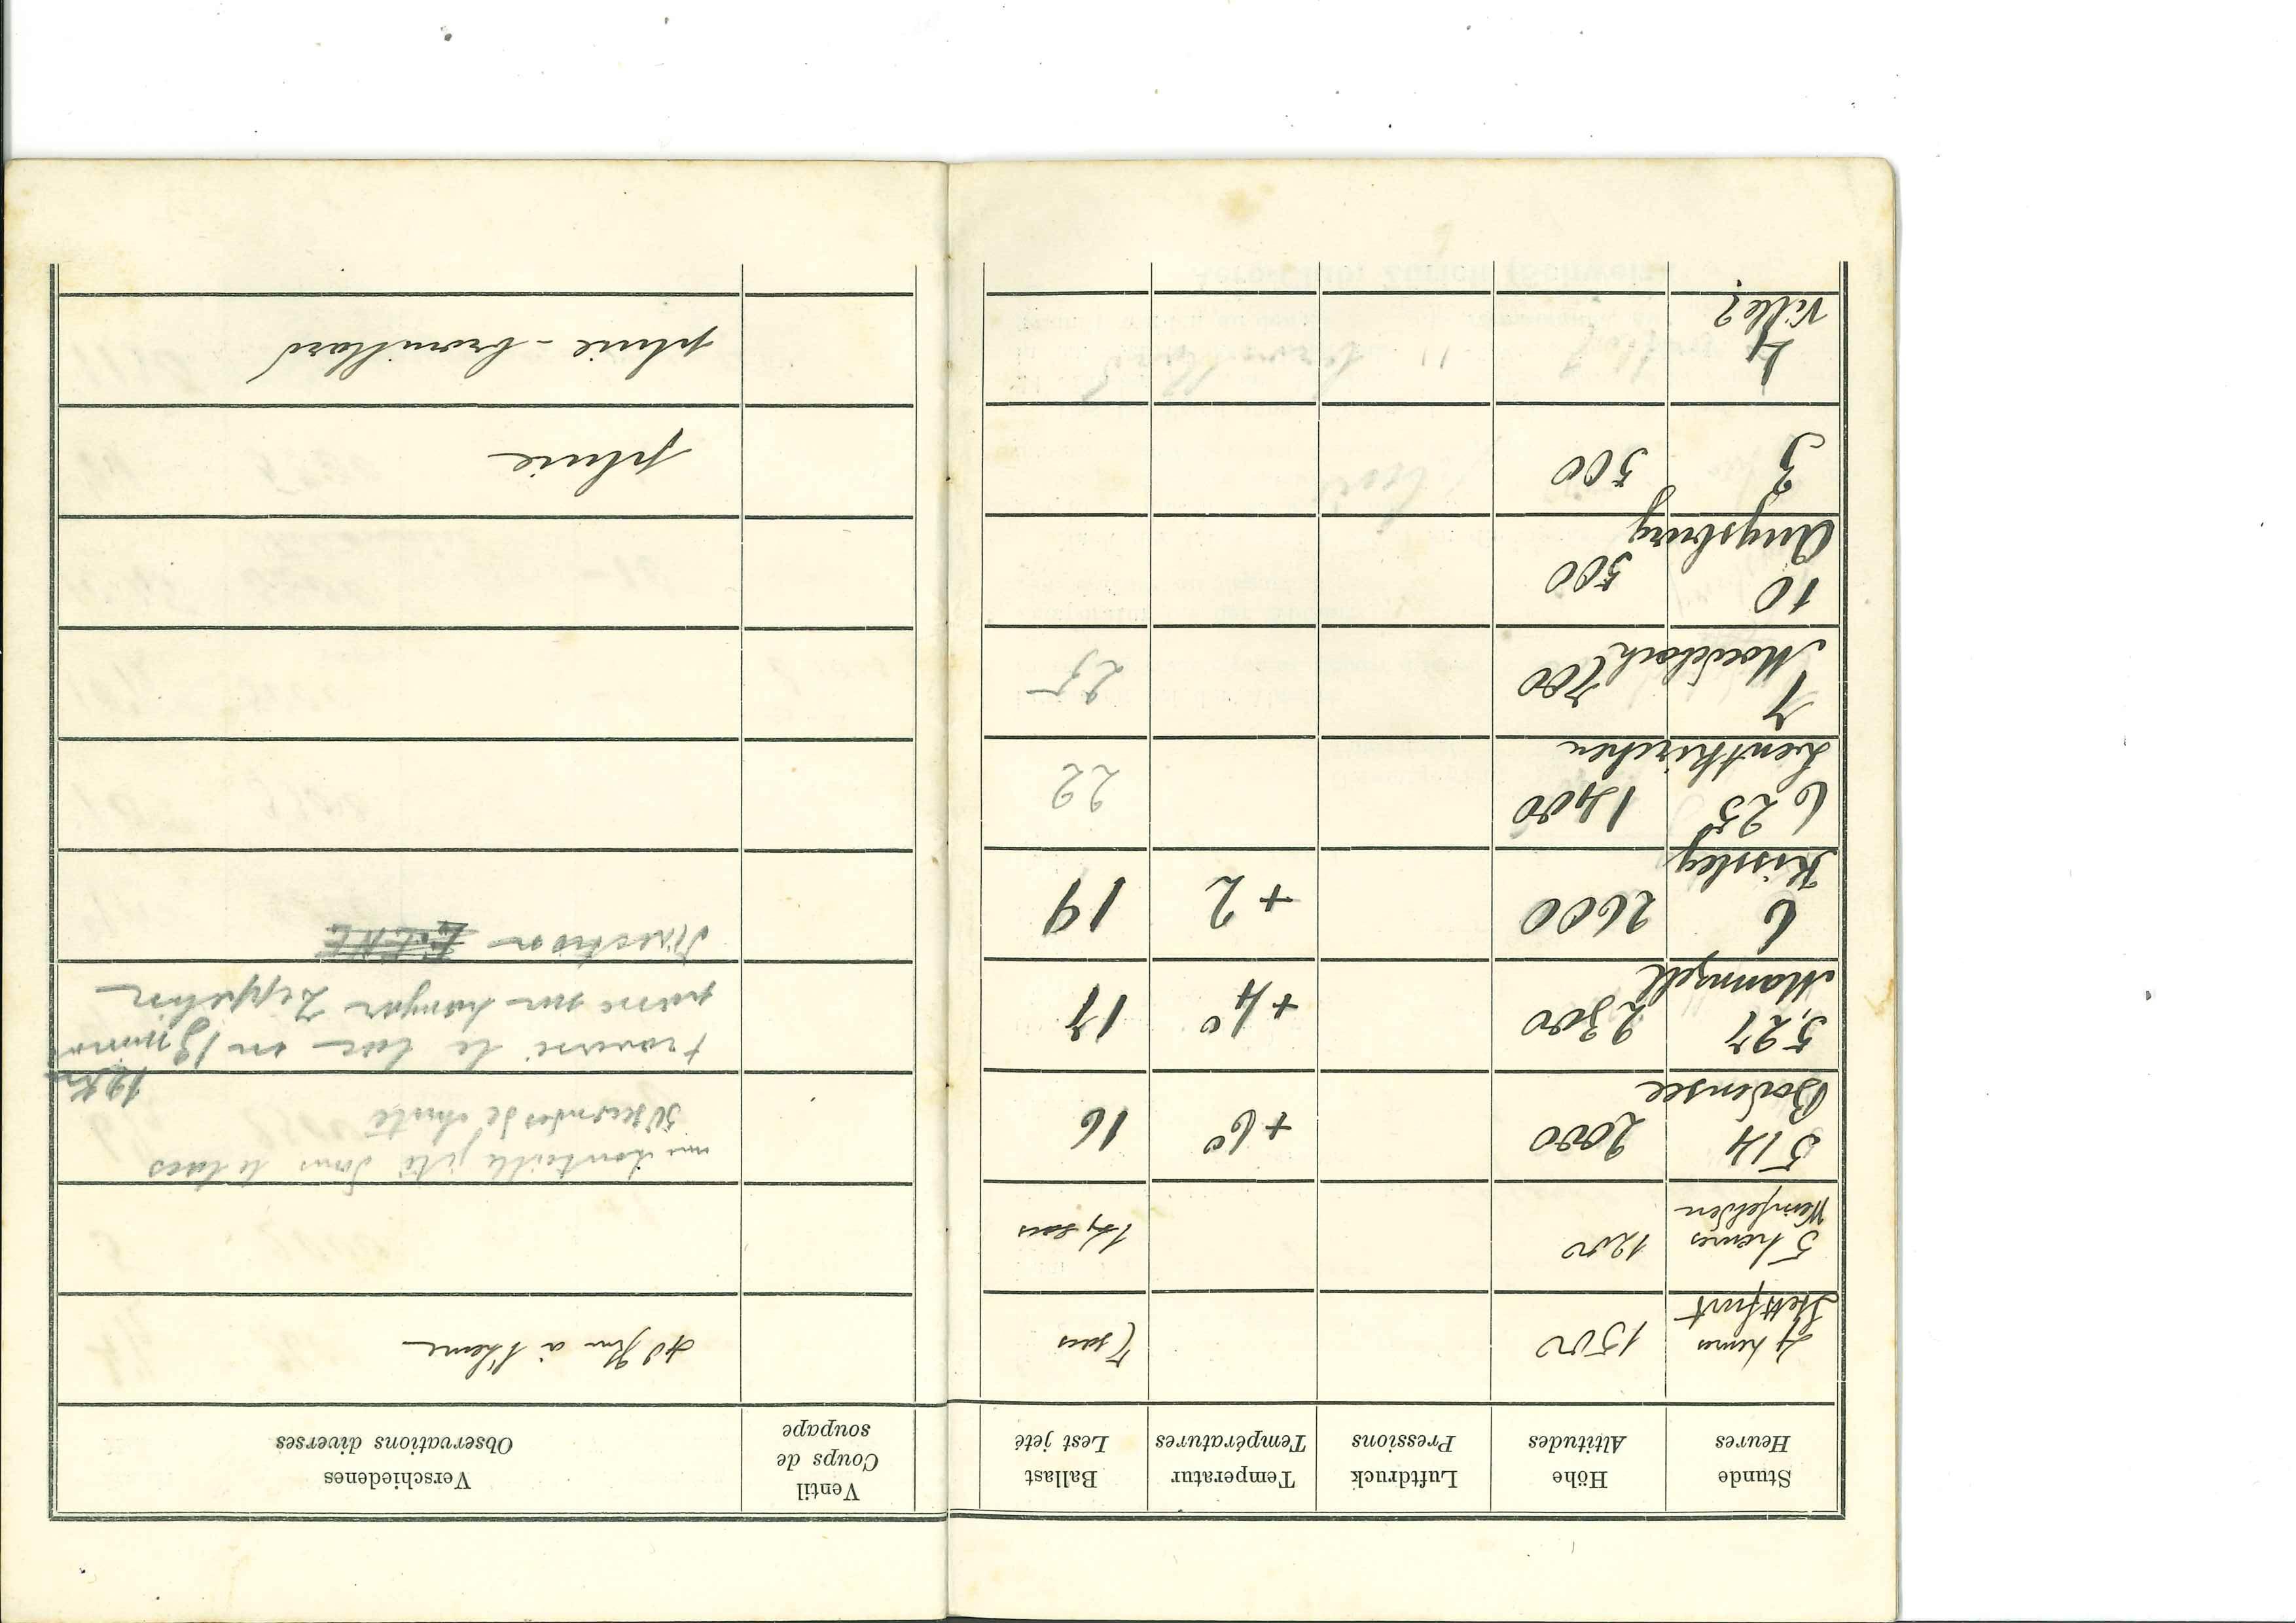 Stunde Höhe Luftdruck Temperatur Ballast Ventil Verschiedenes
Heures Altitudes Pressions Températures Lest jeté Coups de soupape Observations diverses
4 heures 1500 7 sacs 40 Km à l'heure
Stettfurt
5 heures 1200 sacs
Weinfelden
5 14 2000 + 6° 16 une bouteille jeté dans le lacs
Bodensee 50 secondes de chute
12 Km
5,27 2300 + 4° 17 traversé le lac en 13 minutes
Mannzell passé sur hangar Zeppelin
6 2600 + 2 19 Direction
Kissleg
6 25 1400 22
Leutkirchen
7 700 25
10 500
Augsburg
3 500 pluie
4 pluie - brouillard
Ville?